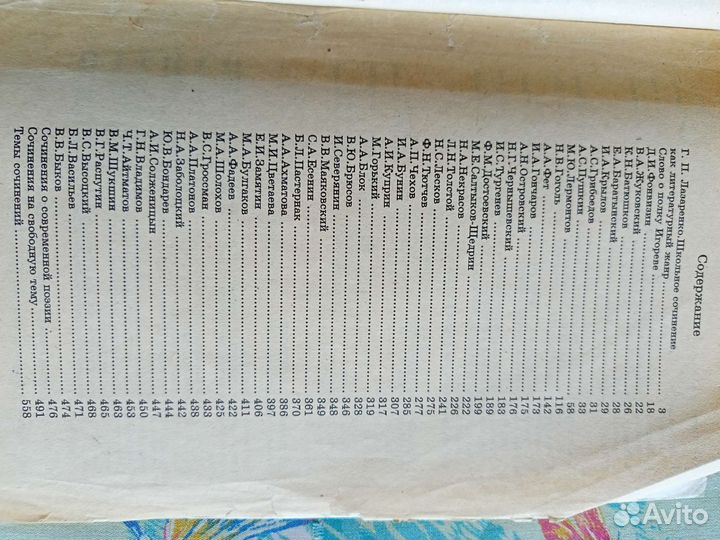 Содержание
Г. П. Лазаренко. Школьное сочинение
как литературный жанр ..... 3
Слово о полку Игореве ..... 18
Д.И.Фонвизин ..... 22
В.А.Жуковский ..... 26
К.Н.Батюшков ..... 28
Е.А.Баратынский ..... 29
И.А.Крылов ..... 31
А.С.Грибоедов ..... 33
А.С.Пушкин ..... 58
М.Ю.Лермонтов ..... 116
Н.В.Гоголь ..... 142
А.А.Фет ..... 173
И.А.Гончаров ..... 175
А.Н.Островский ..... 176
Н.Г.Чернышевский ..... 183
И.С.Тургенев ..... 189
Ф.М.Достоевский ..... 199
М.Е.Салтыков-Щедрин ..... 222
Н.А.Некрасов ..... 226
Л.Н.Толстой ..... 241
Н.С.Лесков ..... 275
Ф.Н.Тютчев ..... 277
А.П.Чехов ..... 285
И.А.Бунин ..... 307
А.И.Куприн ..... 317
М.Горький ..... 319
А.А.Блок ..... 328
В.Ю.Брюсов ..... 346
И.Северянин ..... 348
В.В.Маяковский ..... 349
С.А.Есенин ..... 361
Б.Л.Пастернак ..... 370
А.А.Ахматова ..... 386
М.И.Цветаева ..... 397
Е.И.Замятин ..... 406
М.А.Булгаков ..... 411
А.А.Фадеев ..... 422
М.А.Шолохов ..... 425
В.С.Гроссман ..... 433
А.П.Платонов ..... 438
Н.А.Заболоцкий ..... 442
Ю.В.Бондарев ..... 444
А.И.Солженицын ..... 447
Г.Н.Владимов ..... 450
Ч.Т.Айтматов ..... 453
В.М.Шукшин ..... 463
В.Г.Распутин ..... 465
В.С.Высоцкий ..... 468
Б.Л.Васильев ..... 471
В.В.Быков ..... 474
Сочинения о современной поэзии ..... 476
Сочинения на свободную тему ..... 491
Темы сочинений ..... 558
Avito